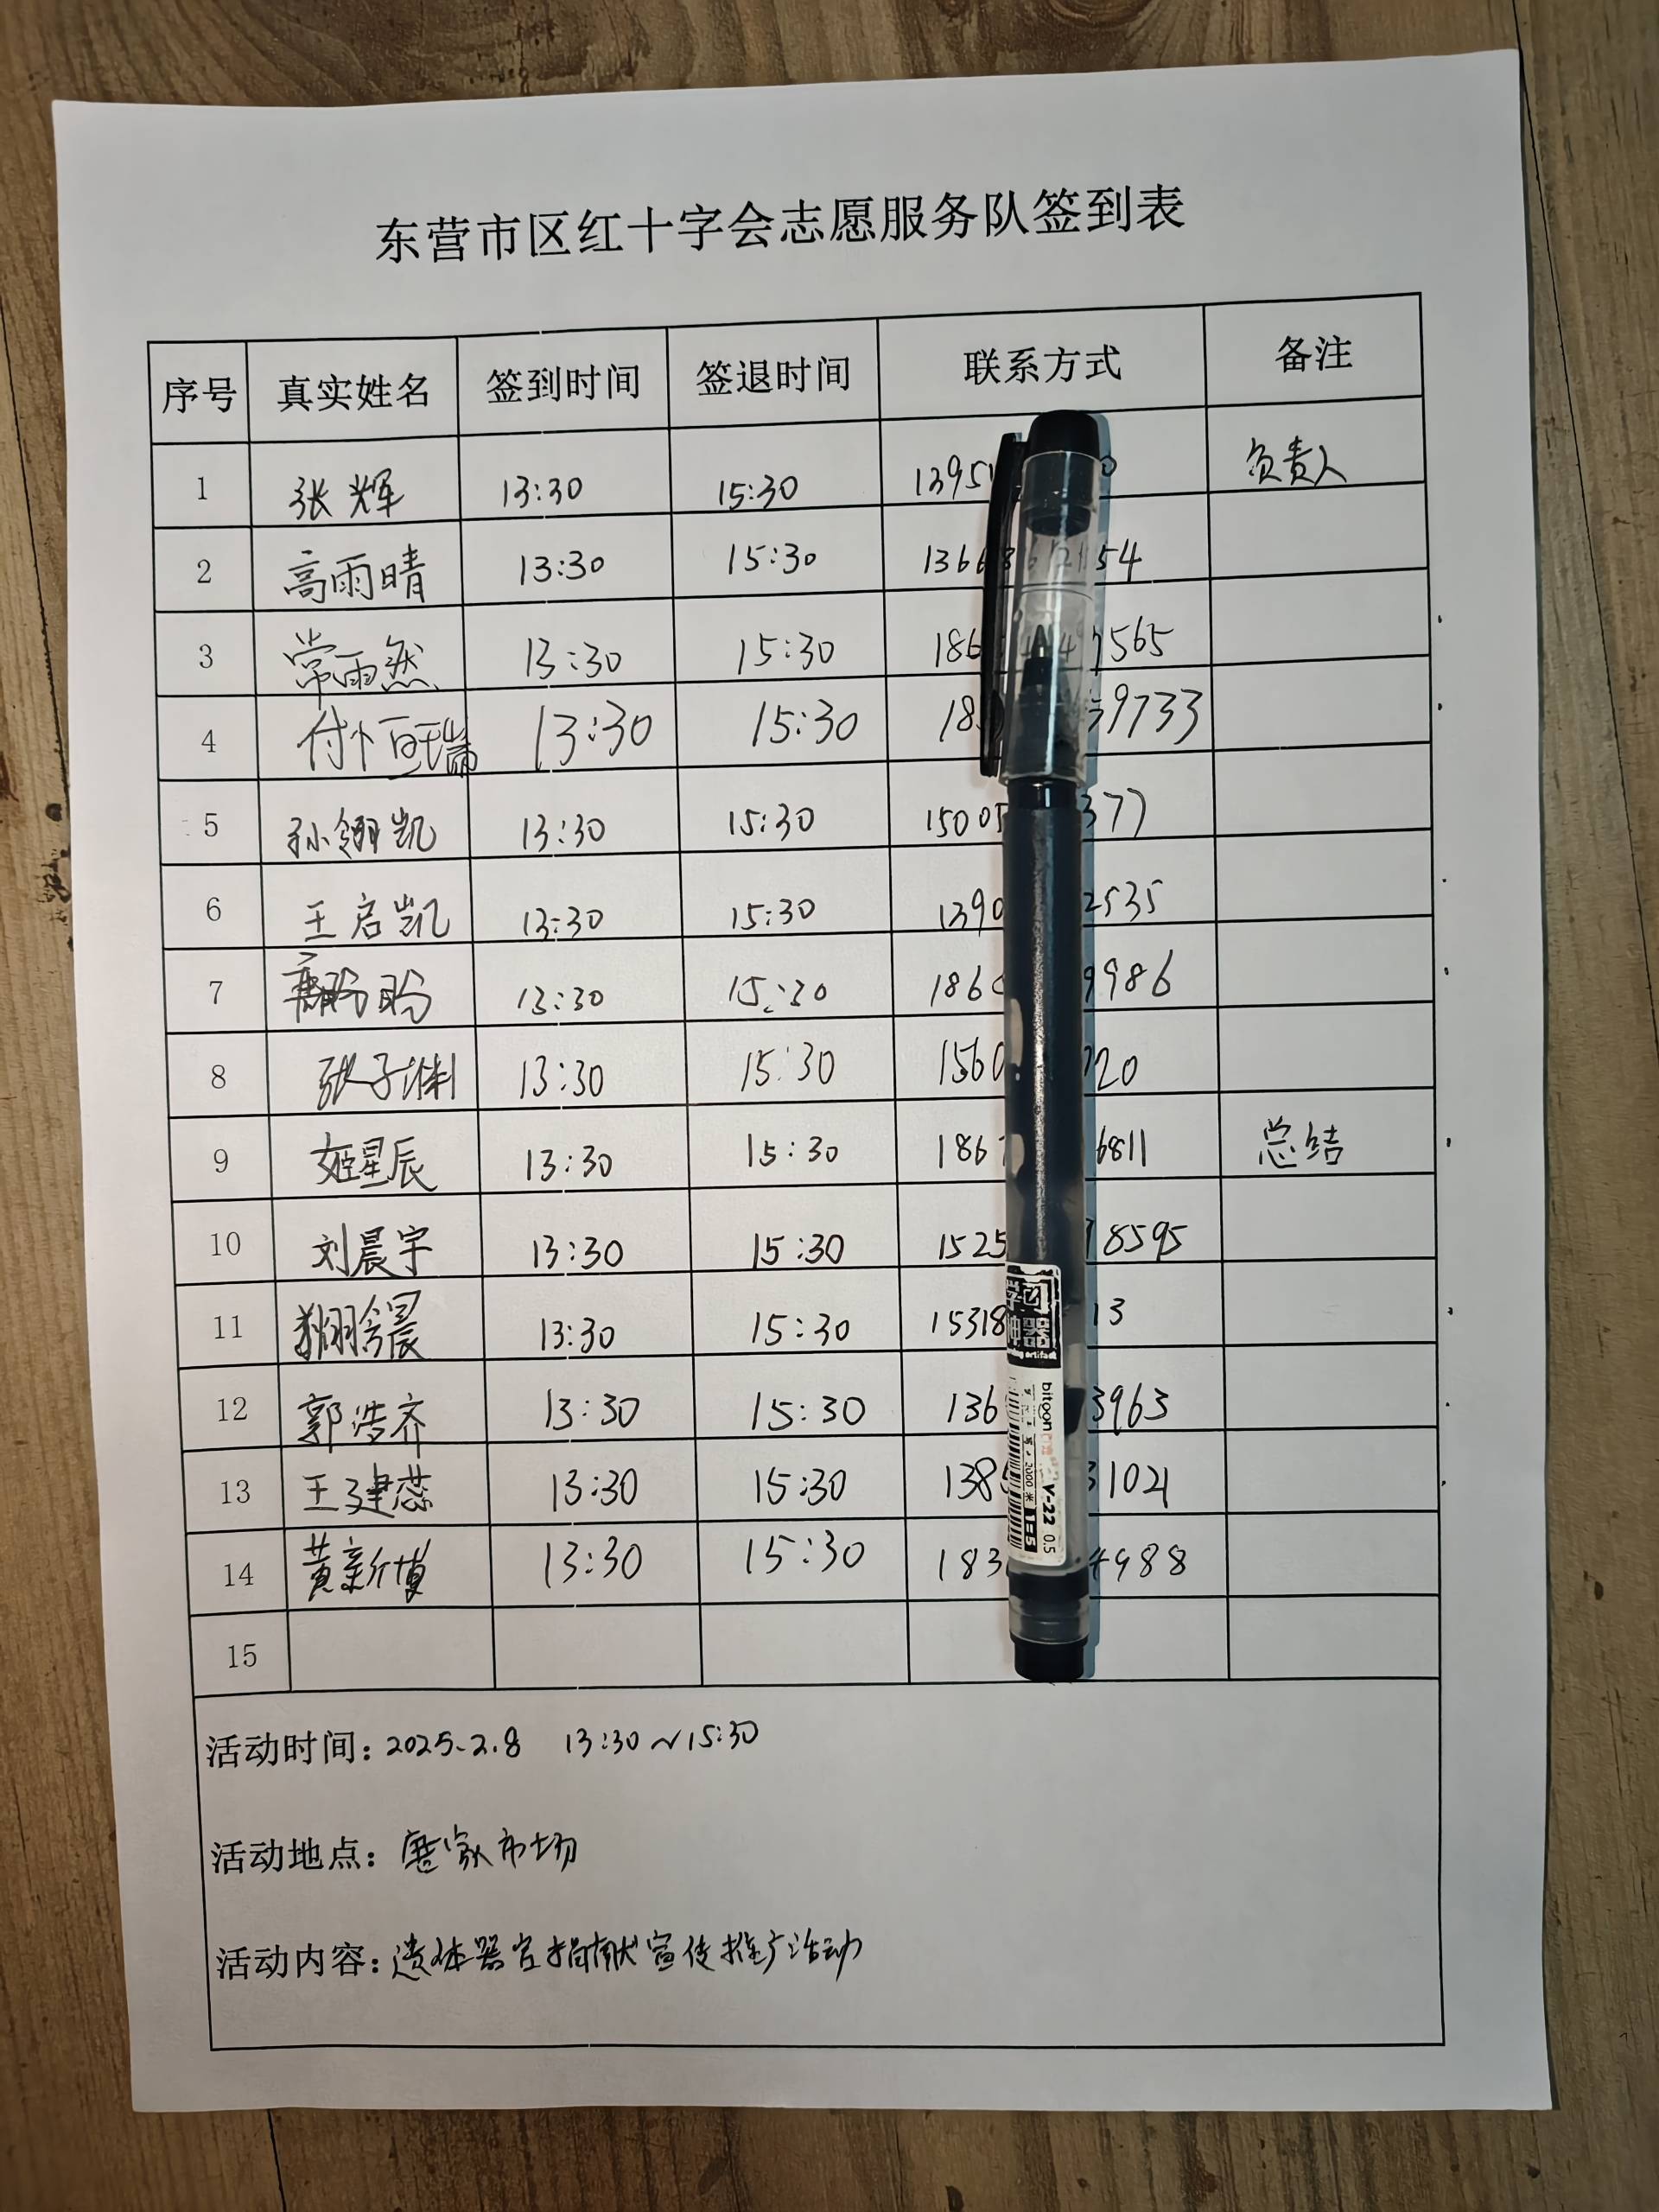 东营市区红十字会志愿服务队签到表
序号 真实姓名 签到时间 签退时间 联系方式 备注
1 张辉 13:30 15:30 1395 0 负责人
2 高雨晴 13:30 15:30 1366 54
3 常雨然 13:30 15:30 186 7565
4 付恒瑞 13:30 15:30 18 9733
5 孙翎凯 13:30 15:30 15005 377
6 王启凯 13:30 15:30 1390 2535
7 盼 13:30 15:30 186 9986
8 张子渊 13:30 15:30 1560 20
9 姬星辰 13:30 15:30 186 6811 总结
10 刘晨宇 13:30 15:30 1525 8595
11 13:30 15:30 15318 13
12 郭浩齐 13:30 15:30 136 3963
13 王建蕊 13:30 15:30 138 31021
14 黄新博 13:30 15:30 183 4988
15
学习
神器
bitoon
2000米
V-22 0.5
活动时间: 2025.2.8 13:30~15:30
活动地点: 市场
活动内容: 遗体器官捐献宣传推广活动